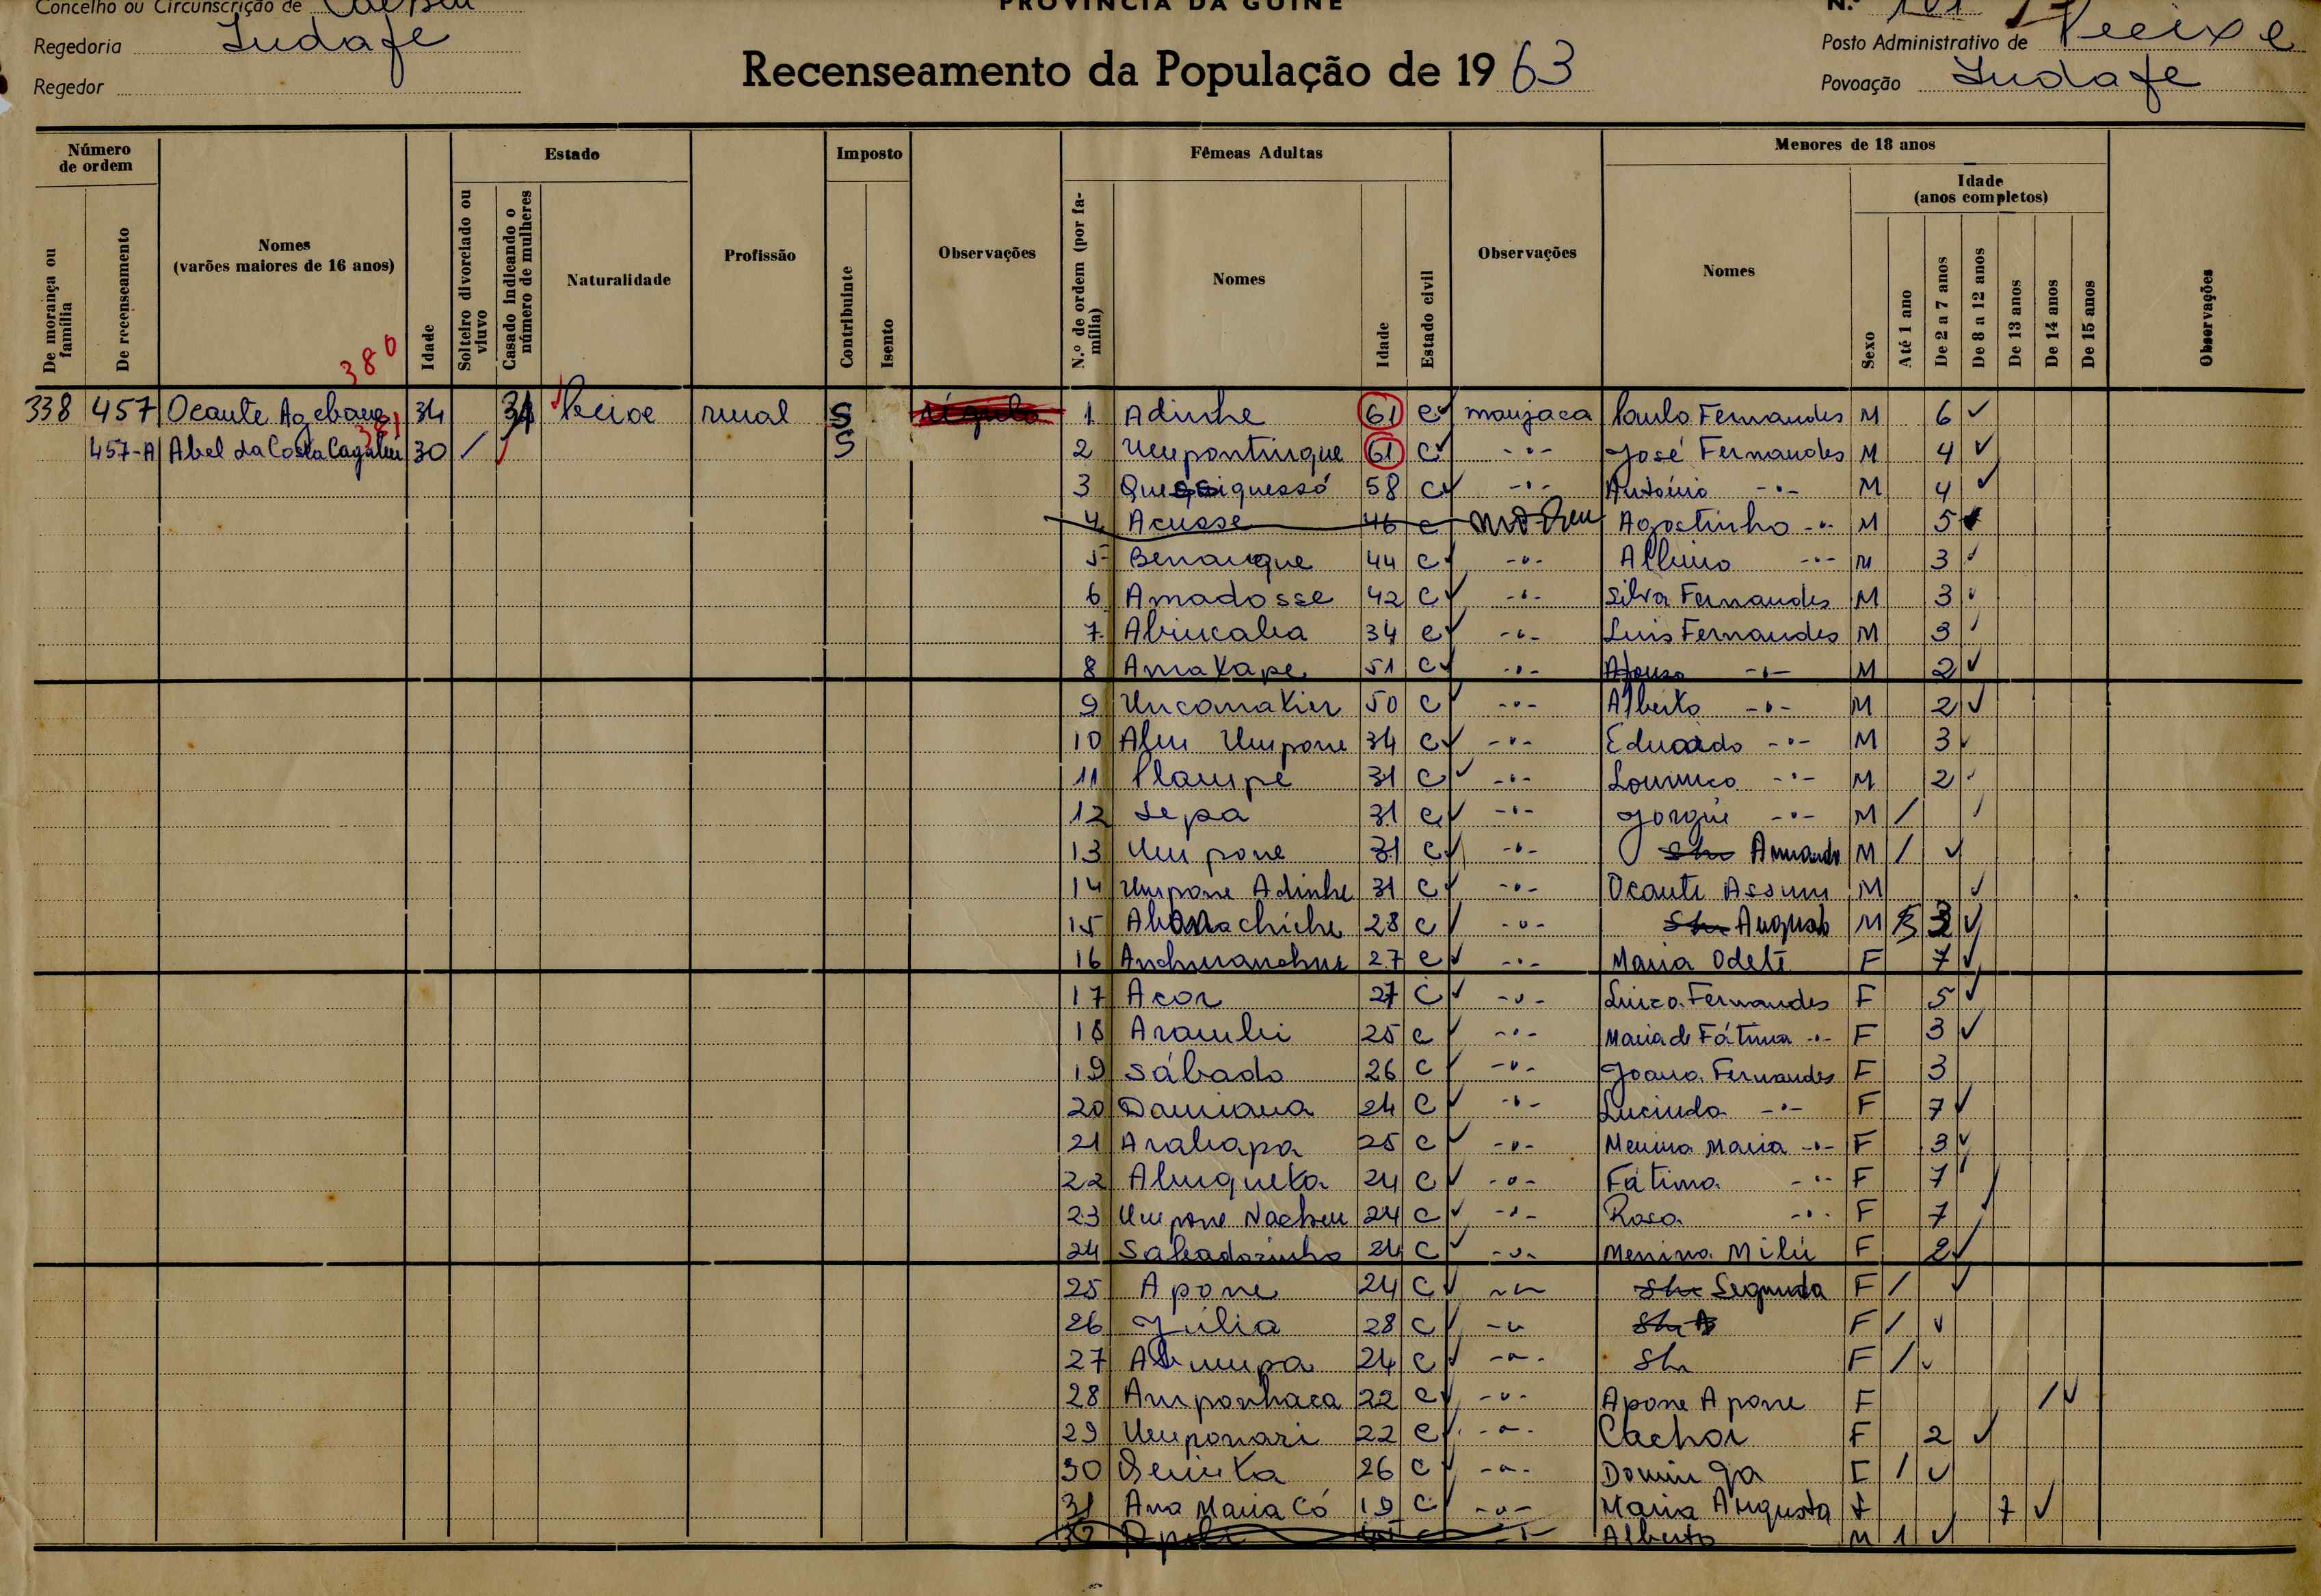 Concelho ou Circunscrição de
PROVÍNCIA DA GUINÉ
N.º 101
Regedoria Indafe
Posto Administrativo de Pecixe
Recenseamento da População de 1963
Regedor
Povoação Indafe
Número de ordem
De morança ou família
De recenseamento
Nomes (varões maiores de 16 anos)
Idade
Estado
Solteiro divorciado ou viuvo
Casado indicando o número de mulheres
Naturalidade
Profissão
Imposto
Contribuinte
Isento
Observações
Fêmeas Adultas
N.º de ordem (por família)
Nomes
Idade
Estado civil
Observações
Menores de 18 anos
Nomes
Sexo
Idade (anos completos)
Até 1 ano
De 2 a 7 anos
De 8 a 12 anos
De 13 anos
De 14 anos
De 15 anos
Observações
380
338 457 Ocante 34 Pecixe rural S régulo 1 Adinhe 61 C manjaca Paulo Fernandes M 6
381
457-A Abel da Costa 30 S 2 Umpontinque 61 C -"- José Fernandes M 4
3 58 C -"- António -"- M 4
4 Acusse 46 C Agostinho -"- M 5
5 Benanque 44 C -"- Albino -"- M 3
6 Amadosse 42 C -"- Silva Fernandes M 3
7 Abincaba 34 C -"- Luis Fernandes M 3
8 Amatape 51 C -"- Afonso -"- M 2
9 50 C -"- Alberto -"- M 2
10 Umpone 34 C -"- Eduardo -"- M 3
11 Plampe 31 C -"- Lourenço -"- M 2
12 Sepa 31 C -"- Jorge -"- M /
13 Umpone 31 C -"- Armando M /
14 Umpone Adinhe 31 C -"- Ocante M
15 28 C -"- Augusto M 3
16 27 C -"- Maria Odete F 7
17 Acor 27 C -"- Luiza Fernandes F 5
18 Arambi 25 C -"- Maria de Fátima -"- F 3
19 Sábado 26 C -"- Joana Fernandes F 3
20 Damiana 24 C -"- Lucinda -"- F 7
21 Arabapa 25 C -"- Menina Maria -"- F 3
22 24 C -"- Fátima -"- F 7
23 Umpone 24 C -"- Rosa -"- F 7
24 Sabadozinho 24 C -"- Menina Milú F 2
25 Apone 24 C -"- Segunda F /
26 Júlia 28 C -"- F /
27 24 C -"- S/n F /
28 Amponhaca 22 C -"- Apone Apone F /
29 Umponari 22 C -"- Cachor F 2
30 26 C -"- Dominga F /
31 Ana Maria Có 19 C -"- Maria Augusta F 7
32 Alberto M 1